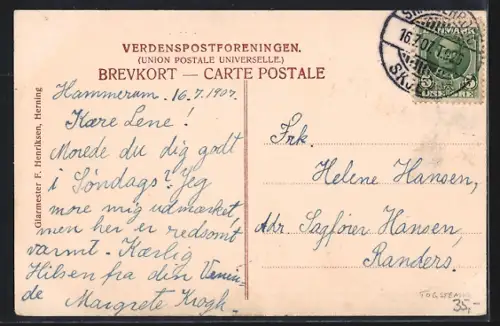 VERDENSPOSTFORENINGEN.
(UNION POSTALE UNIVERSELLE.)
BREVKORT — CARTE POSTALE
Glarmester F. Henriksen, Herning
Hammerum. 16.7.1907.
Kære Lene!
Morede du dig godt
i Søndags? Jeg
more mig udmærket,
men her er redsomt
varmt. Kærlig
Hilsen fra din Venin-
de Margrete Krogh.
DANMARK
16.7.07
SKJ
5
5
Frk.
Helene Hansen,
Adr. Sagfører Hansen,
Randers.
35,-